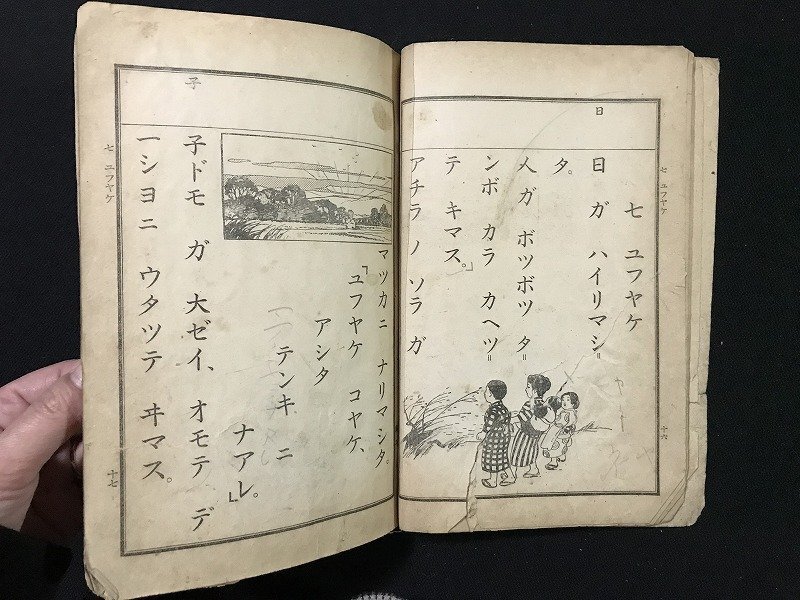 日
七 ユフヤケ
七 ユフヤケ
日 ガ ハイリマシ゠
タ。
人 ガ ボツボツ タ゠
ンボ カラ カヘツ゠
テ キマス。」
アチラ ノ ソラ ガ
十六
子
マツカニ ナリマシタ。
「ユフヤケ コヤケ、
アシタ
テンキ ニ
ナアレ。」
子ドモ ガ 大ゼイ、オモテ デ
一シヨニ ウタツテ ヰマス。
七 ユフヤケ
十七